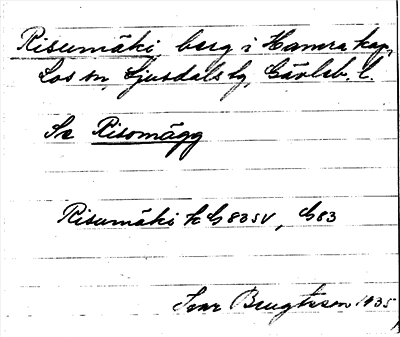 Risumäki, berg i Hamra kap,
Los sn, Ljusdals tg, Gävleb. l.
Se Risomägg
Risumäki k G 83 SV, G83
Ivar Bengtsson 1935